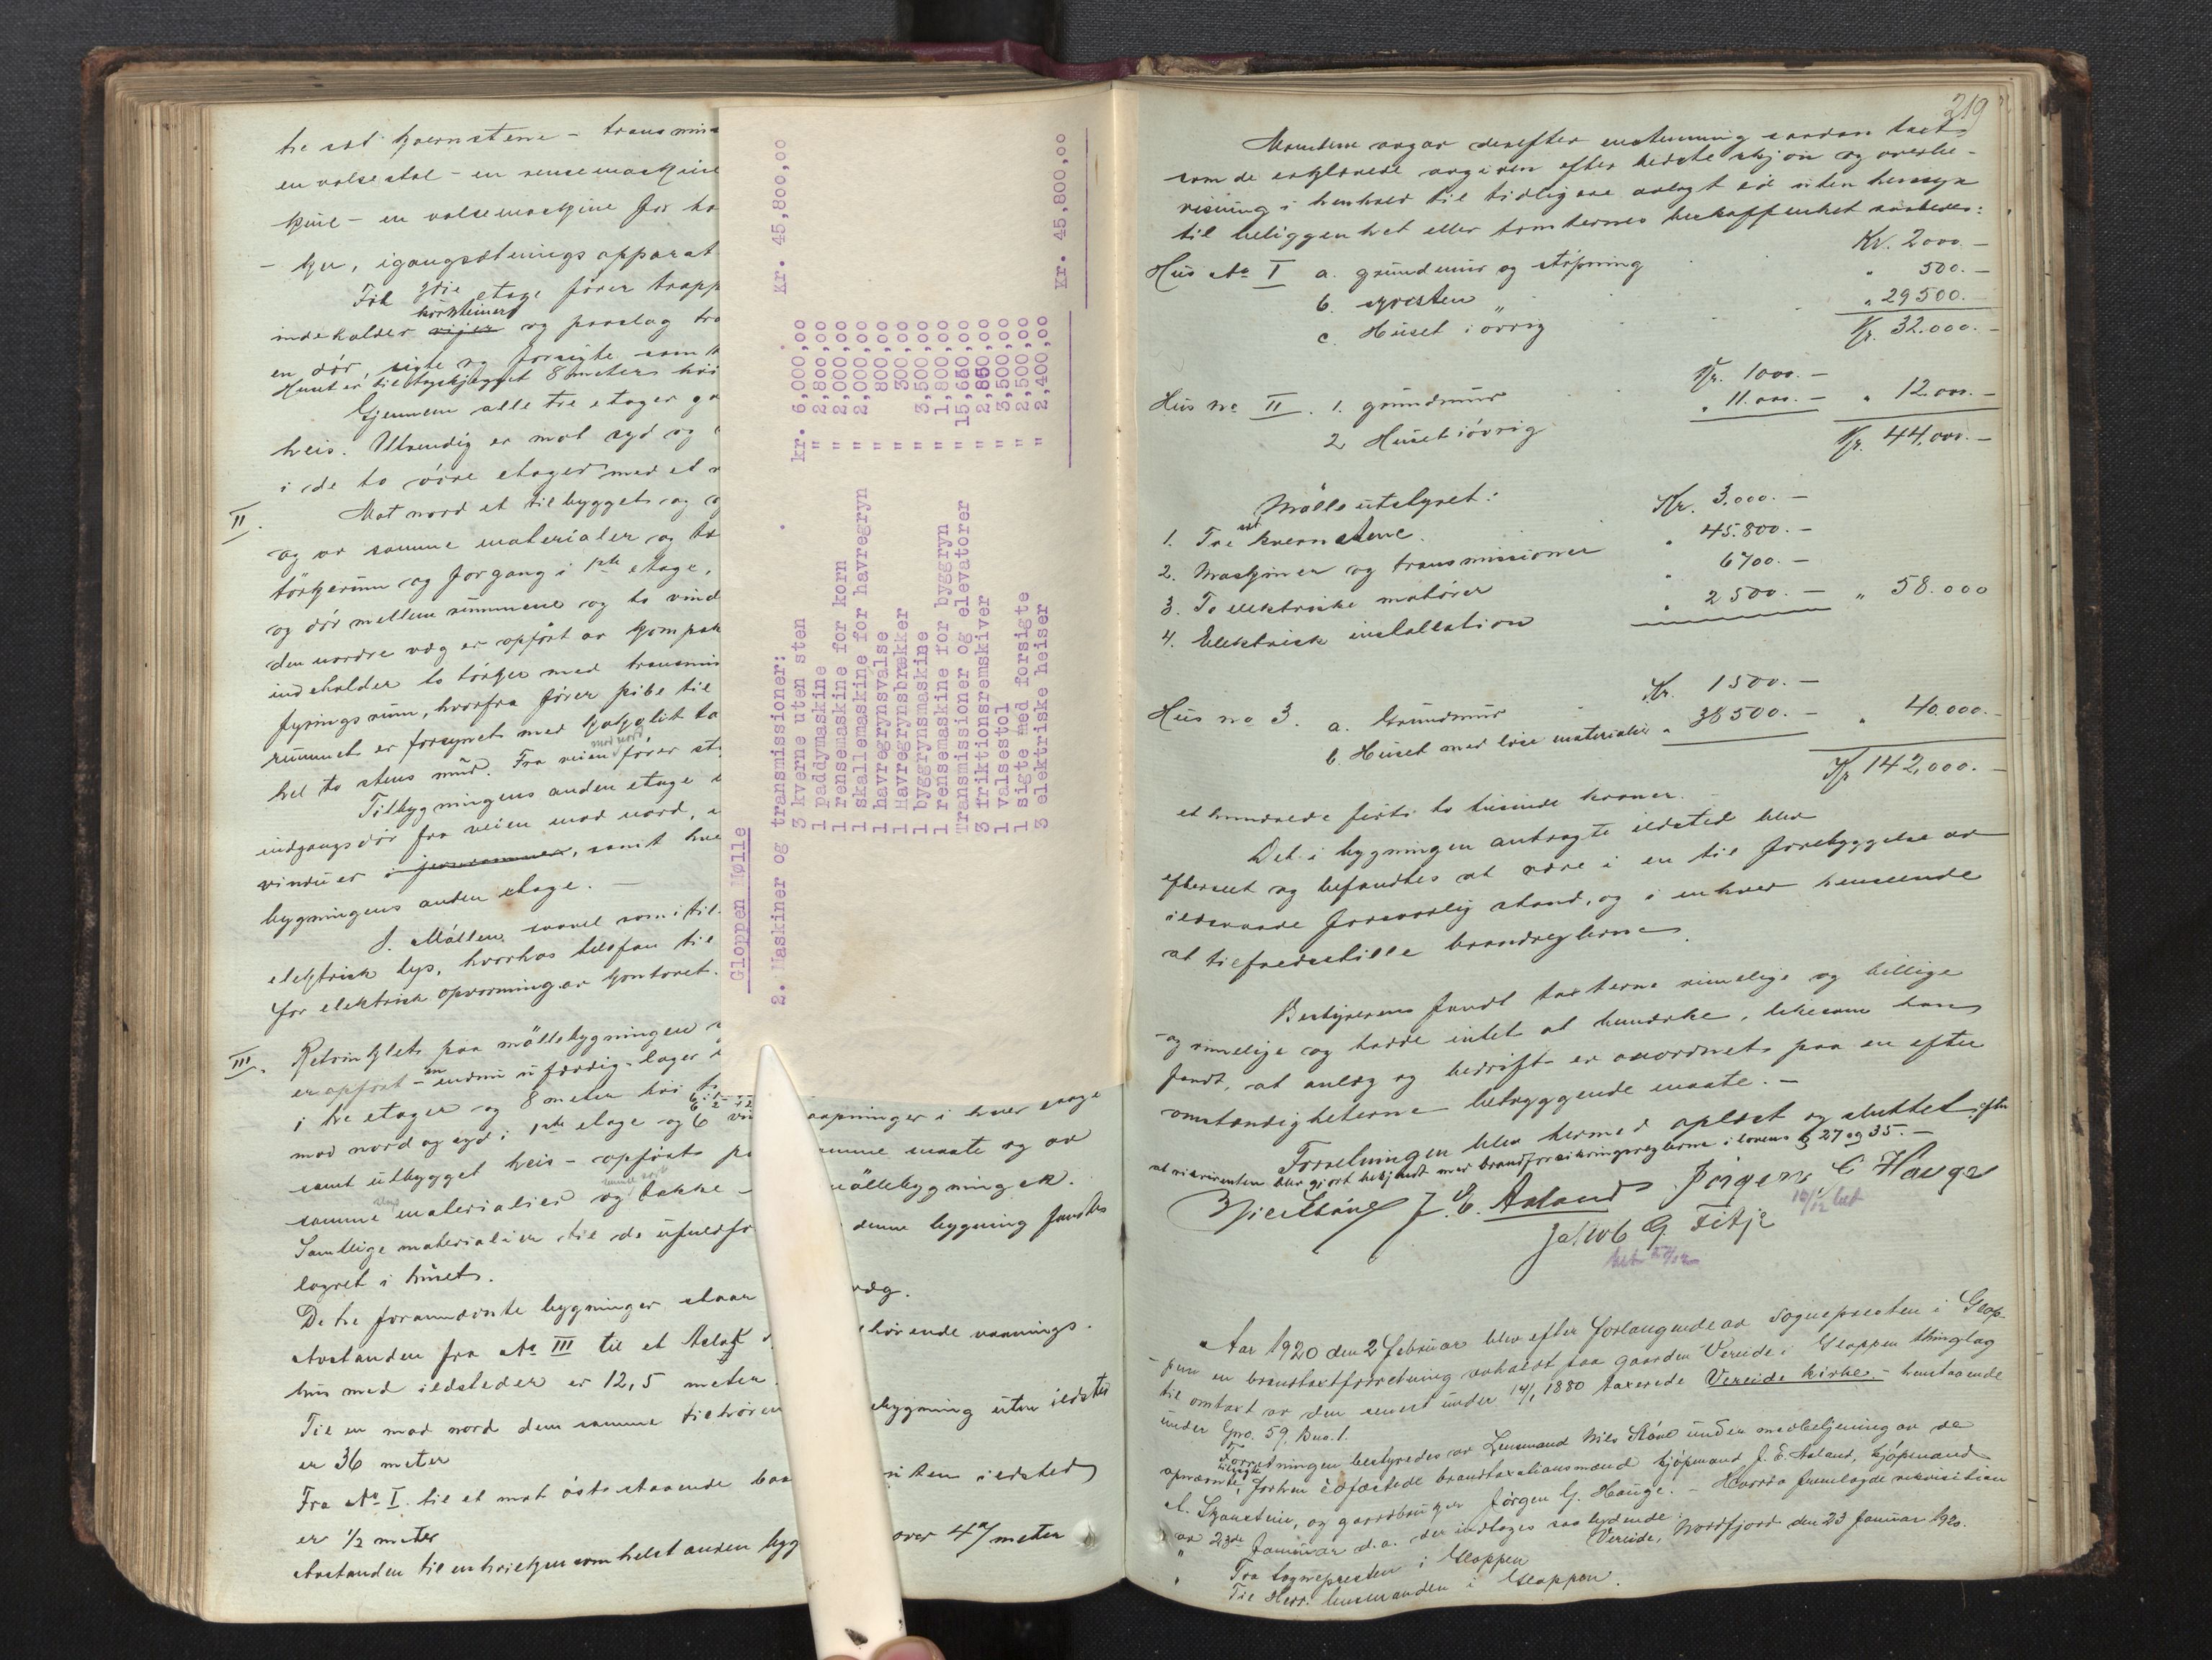 tre set kvernstene - transmis
en valsestol - en rensemaskine
kine - en valsemaskine for ha
- ker, igangsætnings apparat
Til 3die etage fører trapp
indeholder kornbeinger og paaslag tra
en dør, sigte og forsigte samt
Huset er til tagskjægget 8 meters høi
Gjennem alle tre etager ga
heis. Utvendig er mot syd og
i de to øvre etager med et
II.
Mot nord et tilbygget og
og av samme materialer og ta
tørkerum og forgang i 1ste etage,
og dør mellem rummene og to vind
den nordre væg er opført av kompak
indeholder to tørker med transmis
fyringsrum, hvorfra fører pibe til
rummet er forsynet med
hel to stens mur. Fra veien mod nord fører st
Tilbygningens anden etage
indgangsdør fra veien mod nord,
vinduer i jernrammer, samt
bygningens anden etage. -
I Møllen saavel som i til
elektrisk lys, hvorhos telefon til
for elektrisk opvarming av kontoret.
III.
paa møllebygningen
er opført - en endnu ufærdig lager
i tre etager og 8 meter høi
mod nord og syd i 1ste etage og 6 aapninger i hver etage
samt utbygget heis - opført paa samme maate og av
samme slags materialier og takke møllebygningen.
Samtlige materialier til de denne bygning fandtes
lagret i huset.
De tre forannævnte bygninger staar væg.
Avstanden fra No III til et tilhørende vaanings-
hus med ildsteder er 12,5 meter.
Til en mod nord dem samme tilhøren bygning uten ildsted
er 36 meter
Fra No I til et mot øst staaende uten ildsted
er 1/2 meter
Avstanden til enhvilkensomhelst anden byg over 4 meter
Gloppen Mølle
2. Maskiner og transmissioner: . kr. 45,800,00
3 kverne uten sten kr. 6,000,00
1 paddymaskine " 2,800,00
1 rensemaskine for korn " 2,000,00
1 skallemaskine for havregryn " 2,000,00
1 havregrynsvalse " 800,00
1 Havregrynsbrækker " 300,00
1 byggrynsmaskine " 3,500,00
1 rensemaskine for byggryn " 1,800,00
Transmissioner og elevatorer " 15,650,00
3 friktionsremskiver " 2,850,00
1 valsestol " 3,500,00
1 sigte med forsigte " 2,500,00
3 elektriske heiser " 2,400,00
Kr. 45,800,00
219
Mændene avgav derefter enstemmig saadan takst
som de erklærede avgiven efter bedste skjøn og overbe-
visning i henhold til tidligere avlagt ed uten hensyn
til beliggenhet eller tomternes beskaffenhet saaledes:
Hus No I a. grundmur og støpning Kr. 2000.-
b. syvsten " " 500.-
c. Huset i øvrig " 29500.-
Kr. 32.000.-
Hus no II. 1. grundmur Kr. 1000.-
2. Huset iøvrig " 11.000.- " 12.000.-
Kr. 44,000.-
Mølleutstyret:
1. Tre set kvernstene. Kr. 3,000.-
2. Maskiner og transmissioner " 45.800.-
3. To elektriske motorer " 6700.-
4. Elektrisk installation " 2500.- " 58.000
Hus no 3. a. Grundmur Kr. 1500.-
b. Huset med løse materialier " 38500.- " 40.000.-
Kr 142,000.-
et hundrede førti to tusinde kroner.
Det i bygningen antragte ildsted blev
efterseet og befandtes at være i en til forebyggelse av
ildsvaade forsvarlig stand, og i enhver henseende
at tilfredsstille brandreglerne.
Bestyreren fandt taksterne rimelige og billige
og rimelige og hadde intet at bemerke, likesom han
fandt, at anlæg og bedrift er anordnet paa en efter
omstændigheterne betryggende maate. -
Forretningen blev hermed oplæst og sluttet efter
at rekvirenten blev gjort bekjendt med brandforsikringsreglerne i lovens § 27 og 35. -
Nils Støve J. E. Aaland Jørgen G Hauge
Jakob G. Fitje
Aar 1920 den 2 februar blev efter forlangende av Sognepresten i Glop-
pen en brandtakstforretning avholdt paa gaarden Vereide i Gloppen thinglag
til omtakst av den senest under 14/1 1880 taxerede Vereide kirke - henstaaende
under Gno. 59. Bno. 1.
Forretningen bestyredes av Lensmand Nils Støve under medbetjening av de
opnævnte, forhen edfæstede brandtaxationsmænd kjøpmand J. E. Aaland, kjøpmand
A. Skaastein, og gaardbruker Jørgen G. Hauge. - Hvorda fremlagde rekvisition
av 23de Januar d.a. der indtages saa lydende:
" Vereide, Nordfjord den 23 Januar 1920.
Fra Sognepresten i Gloppen
" Til Herr. lensmanden i Gloppen.